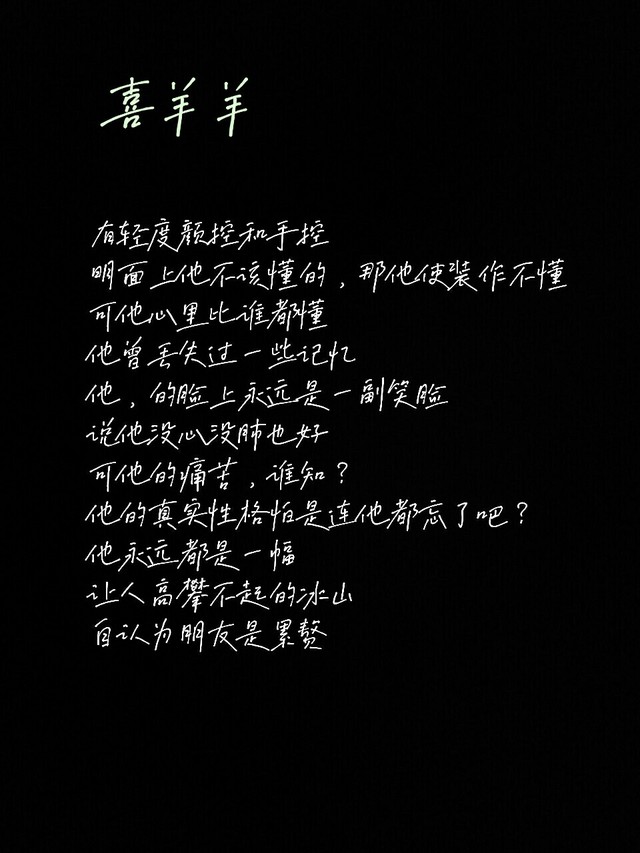 喜羊羊
有轻度颜控和手控
明面上他不该懂的，那他便装作不懂
可他心里比谁都懂
他曾丢失过一些记忆
他，的脸上永远是一副笑脸
说他没心没肺也好
可他的痛苦，谁知？
他的真实性格怕是连他都忘了吧？
他永远都是一幅
让人高攀不起的冰山
自认为朋友是累赘